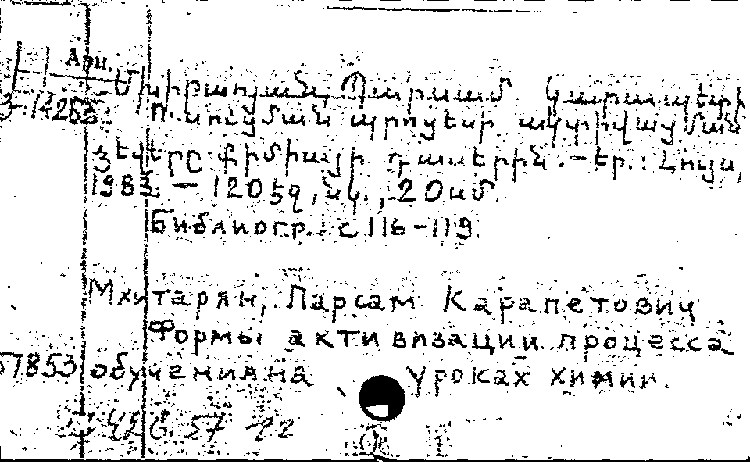 Арм.
Մխիթարյան, Պարսամ Կարապետի
Ուսուցման պրոցեսի ակտիվացման
ձևերը քիմիայի դասերին. – Եր.: Լույս,
1983. – 120 էջ, նկ., 20 սմ.
Библиогр.: с 116-119.
Мхитарян, Парсам Карапетович
Формы активизации процесса
обучения на уроках химии.